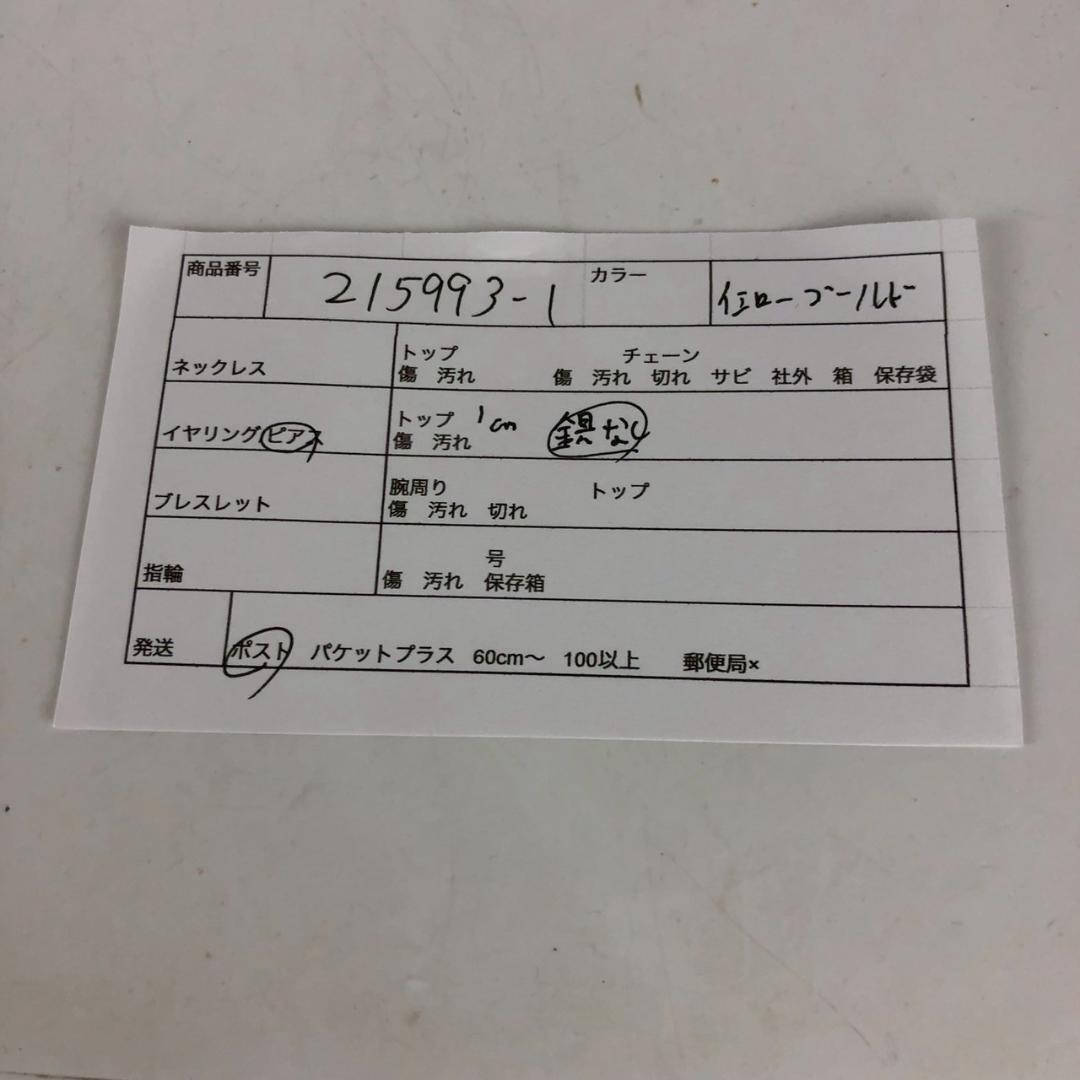 商品番号 215993-1 カラー イエローゴールド
ネックレス
トップ チェーン
傷 汚れ 傷 汚れ 切れ サビ 社外 箱 保存袋
イヤリング ピアス
トップ 1cm
傷 汚れ
ブレスレット
腕周り トップ
傷 汚れ 切れ
指輪
号
傷 汚れ 保存箱
発送 ポスト パケットプラス 60cm〜 100以上 郵便局×